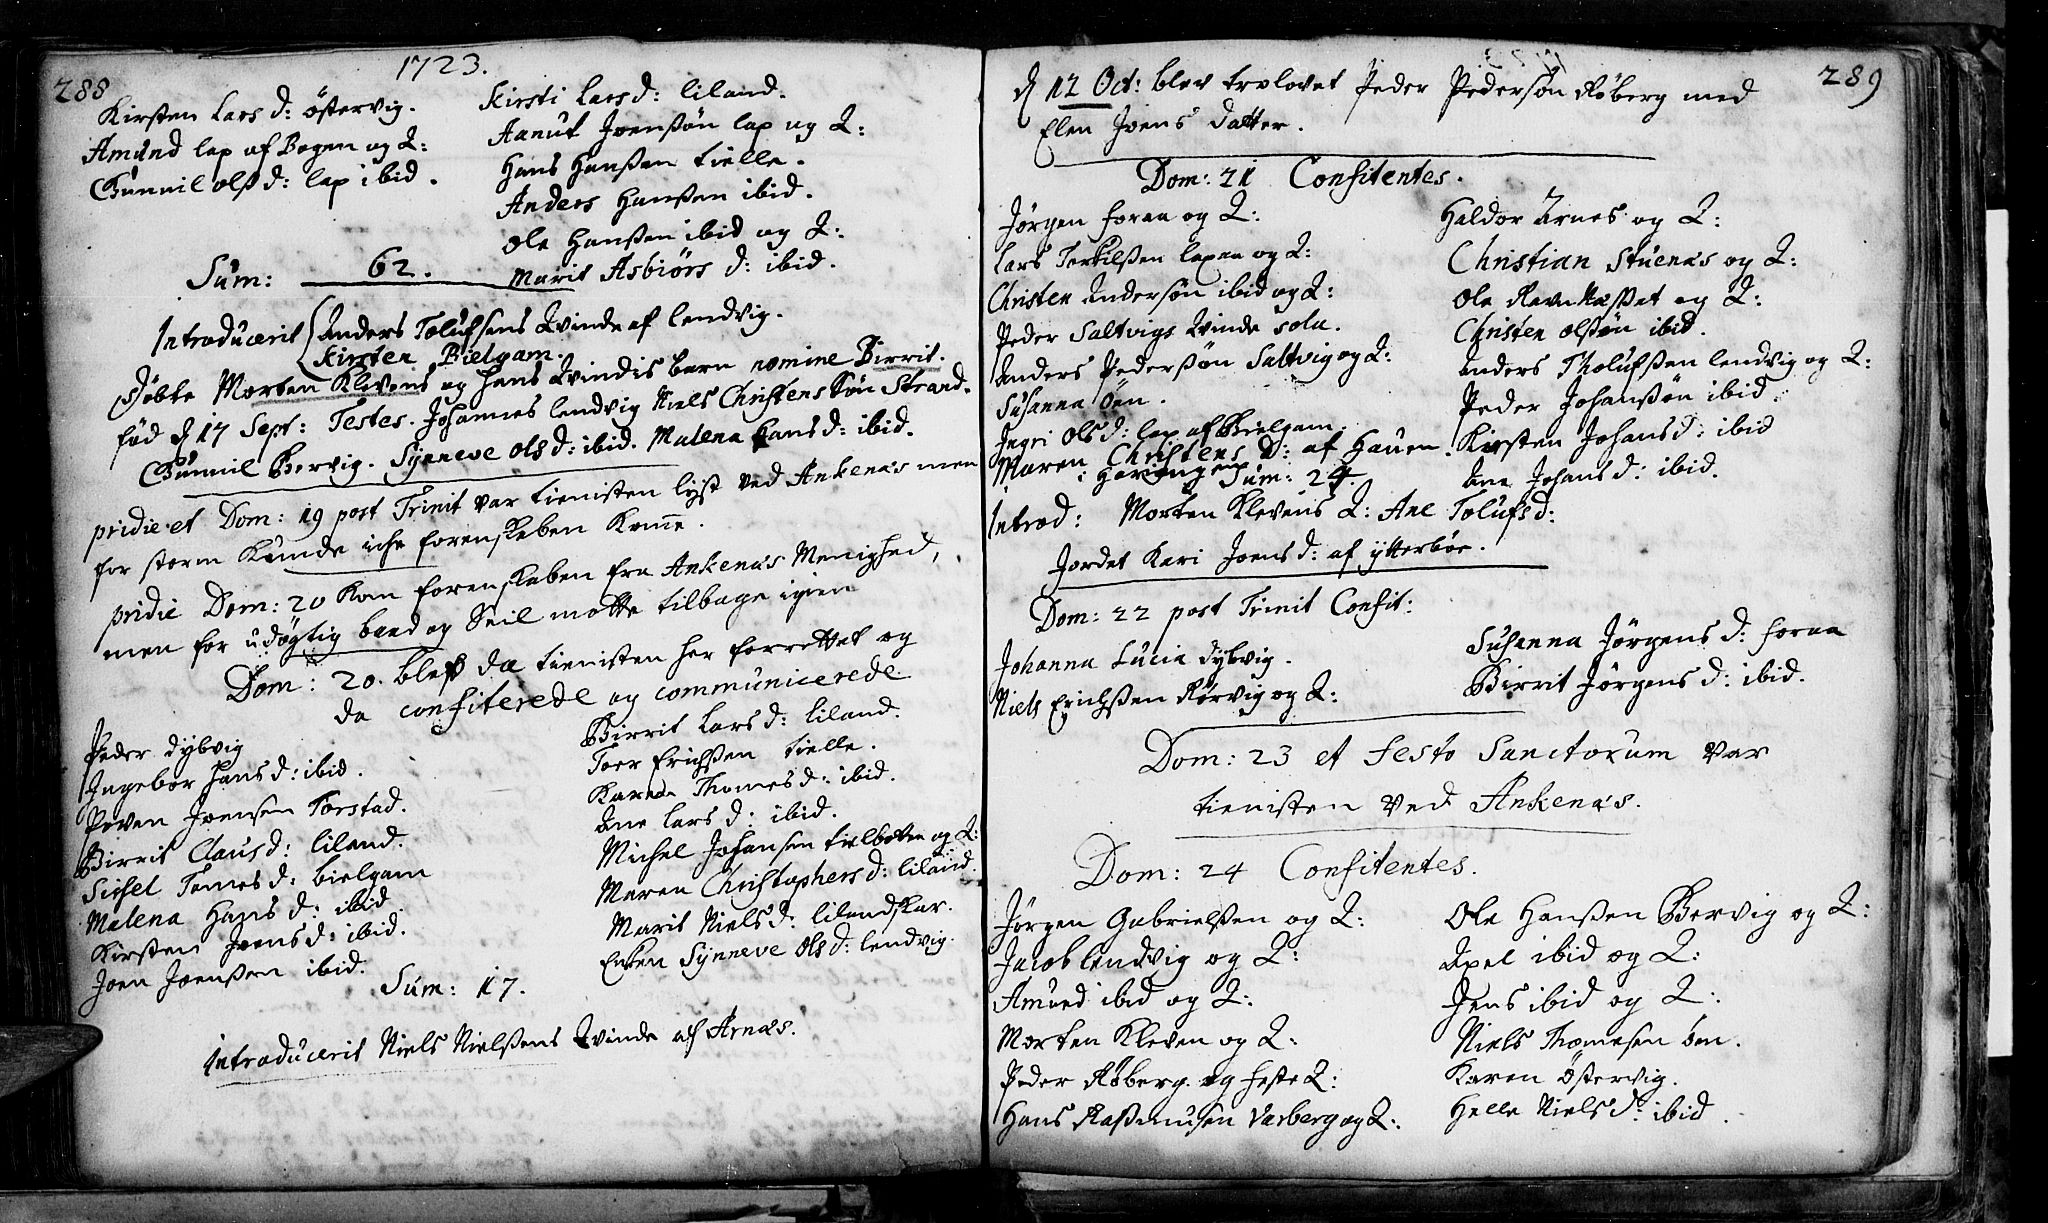 288
1723.
Kirsten Lars d: östervig.
Amund lap af Bogen og Q:
Gunnil ols d: lap ibid.
Kirsti Lars d: liland.
Aanut Joensøn lap og Q:
Hans Hansen tielle.
Anders Hansen ibid.
Ole Hansen ibid og Q:
Marit Asbiörs d: ibid.
Sum: 62.
Introducerit Anders Tolufsens Qvinde af lendvig.
Kirsten Bielgam.
døbte Morten Klevens og hans Qvindis barn nomine Birrit.
fød d 17 Sept: Testes. Johannes lendvig Niels Christens Søn Strand.
Gunnil Bervig. Synneve Ols d: ibid. Malena Hans d: ibid.
pridie et Dom: 19 post Trinit var tienisten lyst ved Ankenæs men
for storm Kunde iche forenskaben Komme.
pridie Dom: 20 Kom forenskaben fra Ankenæs Menighed,
men for udøgtig baad og Seil motte tilbage igien
Dom: 20. blef da tienisten her forrettet og
da confiterede og communicerede
Peder dybvig
Ingebor Hans d: ibid.
Peven Joensen Torstad.
Birrit Claus d: liland.
Sitsel Tomes d: bielgam
Malena Hans d: ibid.
Kirsten Joens d: ibid.
Joen Joenssen ibid.
Birrit Lars d: liland.
Toer Erichssen tielle.
Karen Thomes d: ibid.
Ane Lars d: ibid.
Michel Johansen tielbotten og Q:
Maren Christophers d: liland.
Marit Niels d: lilandskar.
Enken Synneve Ols d: lendvig.
Sum: 17.
Introducerit Niels Nielssens Qvinde af Arnæs.
289
d 12 Oct: blev trolovet Peder Pedersøn Røberg med
Elen Joens datter.
Dom: 21 Confitentes.
Jørgen foraa og Q:
Lars Terkilssen lapen og Q:
Christen Andersøn ibid og Q:
Peder Saltvigs Qvinde sola.
Anders Pederssøn Saltvig og Q:
Susanna Öen.
Ingri Ols d: lap af Bielgam.
Maren Christens d: af Hauen
Sum: 24.
Haldor Arnes og Q:
Christian Stuenæs og Q:
Ole Ravn Kasset og Q:
Christen olssøn ibid.
Anders Tholufssen lendvig og Q:
Peder Johansøn ibid.
Kirsten Johans d: ibid
Ane Johans d: ibid.
Introd: Morten Klevens Q: Ane Tolufs d:
Jordet Kari Joens d: af ytterböe.
Dom: 22 post Trinit Confit:
Johanna Lucia dybvig.
Niels Erichssen Rørvig og Q:
Susanna Jørgens d: foraa
Birrit Jørgens d: ibid.
Dom: 23 et festo Sanctorum var
tienisten ved Ankenæs.
Dom: 24 Confitentes.
Jørgen Gabrielssen og Q:
Jacob lendvig og Q:
Amund ibid og Q:
Morten Kleven og Q:
Peder Røberg og feste Q:
Hans Rasmussen Varberg og Q:
Ole Hanssen Bervig og Q:
Axel ibid og Q:
Jens ibid og Q:
Niels Thomesen öen.
Karen östervig.
Helle Niels d: ibid.